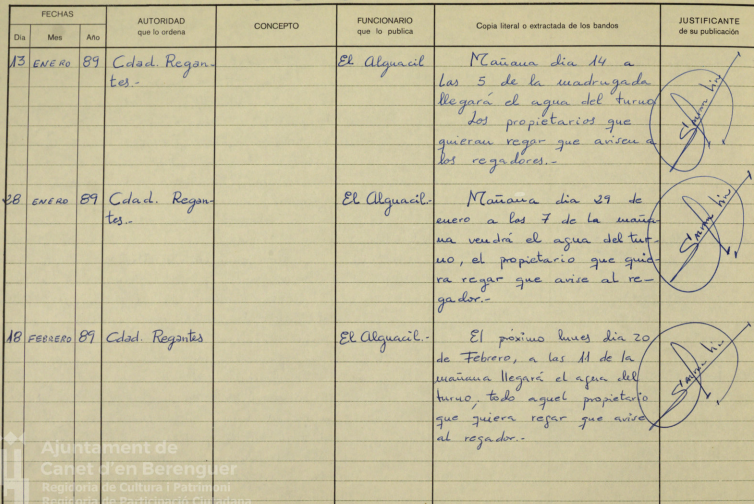 FECHAS
Día Mes Año
AUTORIDAD
que lo ordena
CONCEPTO
FUNCIONARIO
que lo publica
Copia literal o extractada de los bandos
JUSTIFICANTE
de su publicación
13 ENERO 89 Cdad. Regan-
tes.-
El Alguacil
Mañana dia 14 a
las 5 de la madrugada
llegará el agua del turno
Los propietarios que
quieran regar que avisen a
los regadores.-
28 ENERO 89 Cdad. Regan-
tes.-
El Alguacil.-
Mañana dia 29 de
enero a las 7 de la maña-
na vendrá el agua del tur-
no, el propietario que quie-
ra regar que avise al re-
gador.-
18 FEBRERO 89 Cdad. Regantes
El Alguacil.-
El próximo lunes dia 20
de Febrero, a las 11 de la
mañana llegará el agua del
turno, todo aquel propietario
que quiera regar que avise
al regador.-
Ajuntament de
Canet d'en Berenguer
Regidoria de Cultura i Patrimoni
Regidoria de Participació Ciutadana